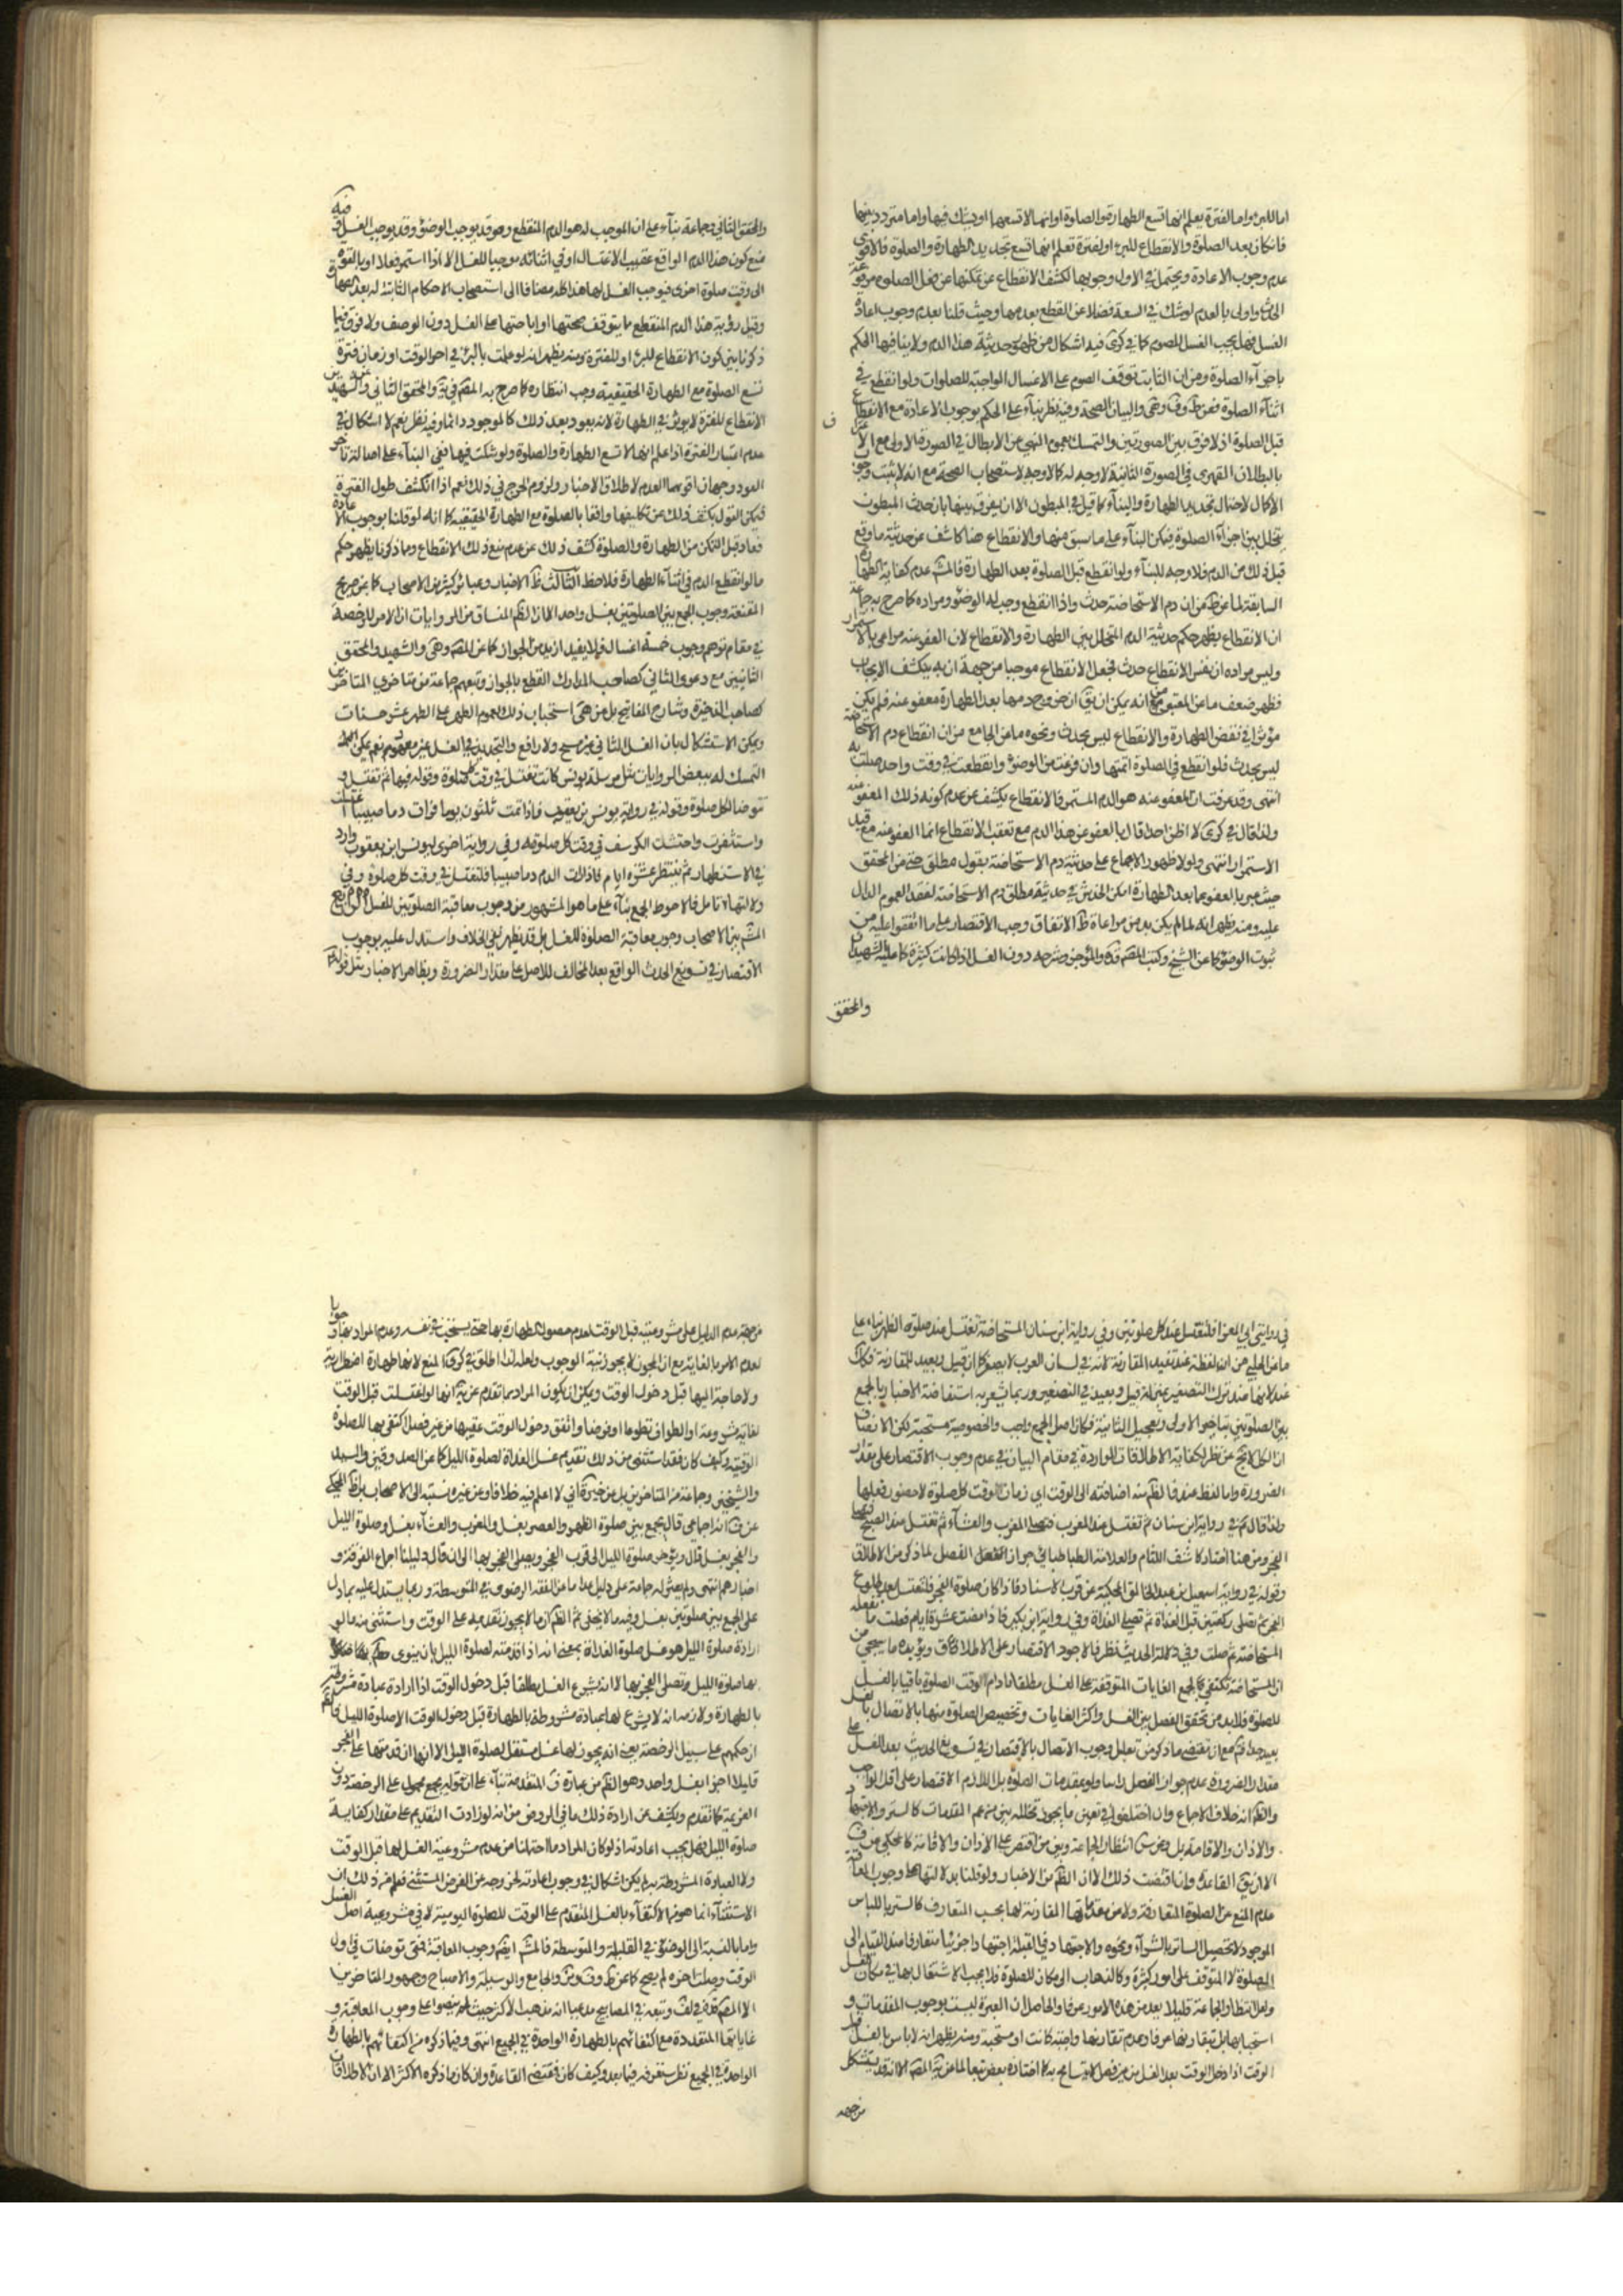 اما للبرء واما لفترة يعلم انها تسع الطهارة والصلوة او انها لا تسعهما او يشك فيها واما متردد بينهما
فان كان بعد الصلوة والانقطاع للبرء او لفترة تعلم انها تسع تجديد الطهارة والصلوة فالاقوى
عدم وجوب الاعادة ويحتمل في الاول وجوبها لكشف الانقطاع عن تمكنها عن فعل الصلوة
واولى بالعدم لو شك في السعة فضلا عن القطع بعدمها وحيث قلنا بعدم وجوب اعادة
الغسل فهل يجب الغسل للصوم كما في كرى فيه اشكال من ظهور حدثية هذا الدم ولا ينافيها الحكم
باجزاء الصلوة ومن ان الثابت توقف الصوم على الاغسال الواجبة للصلوات ولو انقطع في
اثناء الصلوة فعن ط وف وهى والبيان الصحة وفيه نظر بناء على الحكم بوجوب الاعادة مع الانقطاع
قبل الصلوة اذ لا فرق بين الصورتين والتمسك بعموم النهي عن الابطال في الصورة الاولى مع
بالبطلان القهري في الصورة الثانية لا وجه له كالاوجه لاستصحاب الصحة مع انه لا يثبت
الاكمال لاحتمال تجديد الطهارة والبناء كما قيل في المبطون الا ان يفرق بينها بان حدث المبطون
تخلل بين اجزاء الصلوة فيمكن البناء على ما سبق منها والانقطاع هنا كاشف عن حدثية ما وقع
قبل ذلك من الدم فلا وجه للبناء ولو انقطع قبل الصلوة بعد الطهارة فالمش عدم كفاية
السابقة لما عن ان دم الاستحاضة حدث واذا انقطع وجب له الوضوء ومراده كما صرح به جماعة
ان الانقطاع يظهر حكم حدثية الدم المتخلل بين الطهارة والانقطاع لان العفو عنه مراعى بالاستمرار
وليس مراده ان نفس الانقطاع حدث فجعل الانقطاع موجبا من جهة انه به ينكشف الايجاب
فظهر ضعف ما عن المعتبر انه يمكن ان يق ان خروج دمها بعد الطهارة معفو عنه فلم يكن
مؤثرا في نقض الطهارة والانقطاع ليس بحدث ونحوه ما عن الجامع من ان انقطاع دم الاستحاضة
ليس بحدث فلو انقطع في الصلوة اتمتها وان فرغت من الوضوء وانقطعت في وقت واحد صلت به
انتهى وقد عرفت ان المعفو عنه هو الدم المستمر فالانقطاع يكشف عن عدم كونه ذلك المعفو عنه
ولذا قال في كرى لا اظن احدا قال بالعفو عن هذا الدم مع تعقب الانقطاع انما العفو عنه مع قيد
الاستمرار انتهى ولولا ظهور الاجماع على حدثية دم الاستحاضة بقول مطلق حتى من المحقق
حيث عبر بالعفو عما بعد الطهارة امكن الخدش في حدثية مطلق دم الاستحاضة لفقد العموم الدال
عليه ومنه يظهر انه لما لم يكن بد من مراعاة الاتفاق وجب الاقتصار على ما اتفقوا عليه من
ثبوت الوضوء كما عن الشيخ وكتب المصنف والموجز وشرحه دون الغسل اذا كانت كثيرة كما عليه الشهيدان
والمحقق
والمحقق الثاني وجماعة بناء على ان الموجب له هو الدم المنقطع وهو قد يوجب الوضوء وقد يوجب الغسل وفيه
منع كون هذا الدم الواقع عقيب الاغتسال او في اثنائه موجبا للغسل الا اذا استمر فعلا او بالقوة
الى وقت صلوة اخرى فيوجب الغسل لها هذا كله مضافا الى استصحاب الاحكام الثابتة له بعد
وقبل رؤية هذا الدم المنقطع ما يتوقف صحتها او اباحتها على الغسل دون الوصف ولا فرق فيما
ذكرنا بين كون الانقطاع للبرء او للفترة ومنه يظهر انه لو علمت بالبرء في اخر الوقت او زمان فترة
تسع الصلوة مع الطهارة الحقيقية وجب انتظاره كما صرح به المصنف والمحقق الثاني وعن الشهيد
الانقطاع للفترة لا يؤثر في الطهارة لانه يعود بعد ذلك كالموجود دائما وفيه نظر نعم لا اشكال في
عدم اعتبار الفترة اذا علم انها لا تسع الطهارة والصلوة ولو شكت فيها ففي البناء على اصالة تاخر
العود وجهان اقويهما العدم لاطلاق الاخبار ولزوم الحرج في ذلك نعم اذا انكشف طول الفترة
فيمكن القول بكشف ذلك عن تكليفها واقعا بالصلوة مع الطهارة الحقيقية كما انه لو قلنا بوجوب الاعادة
فعاد قبل التمكن من الطهارة والصلوة كشف ذلك عن عدم منع ذلك الانقطاع ومما ذكرنا يظهر حكم
ما لو انقطع الدم في اثناء الطهارة فلاحظ الثالث ظ الاخبار وعبائر كثير من الاصحاب كما عن صريح
المقنعة وجوب الجمع بين الصلوتين بغسل واحد الا ان الظ المنساق من الروايات ان الامر للرخصة
في مقام توهم وجوب خمسة اغسال فلا يفيد ازيد من الجواز كما عن المصنف وهى والشهيد والمحقق
الثانيين مع دعوى الثاني كصاحب المدارك القطع بالجواز وتبعهم جماعة من متاخري المتاخرين
كصاحب الذخيرة وشارح المفاتيح بل عن هى استحباب ذلك لعموم الطهر على الطهر عشر حسنات
ويمكن الاستشكال بان الغسل الثاني غير مبيح ولا رافع والتجديد في الغسل غير معهود نعم يمكن
التمسك له ببعض الروايات مثل مرسلة يونس كانت تغتسل في وقت كل صلوة وقوله فيها ثم تغتسل و
تتوضا لكل صلوة وقوله في رواية يونس بن يعقوب فاذا تمت ثلثون يوما فرات دما صبيبا اغتسلت
واستثفرت واحتشت الكرسف في وقت كل صلوة وفي رواية اخرى ليونس ابن يعقوب وارد
في الاستظهار ثم تنتظر عشرة ايام فاذا رات الدم دما صبيبا فلتغتسل في وقت كل صلوة وفي
دلالتها تامل فالاحوط الجمع بناء على ما هو المشهور من وجوب معاقبة الصلوتين للغسل الرابع
المش بين الاصحاب وجوب معاقبة الصلوة للغسل بل قد يظهر نفي الخلاف واستدل عليه بوجوب
الاقتصار في تسويغ الحدث الواقع بعد المخالف للاصل على مقدار الضرورة وبظاهر الاخبار مثل قوله
في روايتي ابي المعزا فلتغتسل عند كل صلوتين وفي رواية ابن سنان المستحاضة تغتسل عند صلوة الظهر بناء على
ما عن الحلي من ان لفظة عند تفيد المقارنة لانه في لسان العرب لا يصغر كان قبيل وبعيد للمقارنة فكذلك
عند لانها عند ترك التصغير بمنزلة قبيل وبعيد في التصغير وربما يشعر به استفاضة الاخبار بالجمع
بين الصلوتين بتاخير الاولى وتعجيل الثانية فكان اصل الجمع واجب والخصوصية مستحبة لكن الانصاف
ان الكل لا يخ عن نظر لكفاية الاطلاقات الواردة في مقام البيان في عدم وجوب الاقتصار على مقدار
الضرورة واما لفظ عند فالظ منه اضافته الى الوقت اي زمان الوقت كل صلوة لا حضور فعلها
ولذا قال في رواية ابن سنان ثم تغتسل عند المغرب فتصلي المغرب والعشاء ثم تغتسل عند الصبح فتصلي
الفجر ومن هنا اختار كاشف اللثام والعلامة الطباطبائي جواز الفصل لما ذكر من الاطلاق
وقوله في رواية اسمعيل بن عبد الخالق المحكية عن قرب الاسناد فاذا كان صلوة الفجر فلتغتسل بعد طلوع
الفجر ثم تصلي ركعتين قبل الغداة ثم تصلي الغداة وفي رواية ابن بكير فاذا مضت عشرة ايام فعلت ما تفعله
المستحاضة ثم صلت وفي دلالة الحديث نظر فالاجود الاقتصار على الاطلاق ويؤيده ما سيجيء من
ان المستحاضة تكتفي لجميع الغايات المتوقفة على الغسل مطلقا ما دام الوقت الصلوة باقيا بالغسل
للصلوة فلابد من تحقق الفصل بين الغسل واكثر الغايات وتخصيص الصلوة منها بالاتصال بالغسل
بعيد جدا ثم مع ان مقتضى ما ذكر من تعليل وجوب الاتصال بالاقتصار في تسويغ الحدث بعد الغسل على
مقدار الضرورة عدم جواز الفصل راسا ولو بمقدمات الصلوة بل اللازم الاقتصار على اقل الواجب
والظ انه خلاف الاجماع وان اختلفوا في تعيين ما يجوز تخلله بين من عمم المقدمات كالستر والاجتهاد
والاذان والاقامة بل وعن انتظار الجماعة وبين من اقتصر على الاذان والاقامة كما يحكى عن ف
الا ان يق القاعدة وان اقتضت ذلك الا ان الظ من الاخبار ولو قلنا بدلالتها على وجوب المعاقبة
عدم المنع عن الصلوة المتعارفة ولا من مقدماتها المقارنة لها بحسب المتعارف كالستر باللباس
الموجود لا تحصيل الساتر بالشراء ونحوه والاجتهاد في القبلة اجتهادا جزئيا متعارفا عند القيام الى
الصلوة لا المتوقف على امور كثيرة وكالذهاب الى مكان للصلوة فلا يجب الاشتغال بها في مكان الغسل
ولعل انتظار الجماعة قليلا يعد من هذه الامور عرفا والحاصل ان العبرة ليست بوجوب المقدمات و
استحبابها بل بتقارنها عرفا وعدم تقارنها واجبة كانت او مستحبة ومنه يظهر انه لا باس بالغسل قبل
الوقت اذا دخل الوقت بعد الغسل من غير فصل لا يتسامح به كما اختاره بعض تبعا لما عن المصنف الا انه قد يستشكل
من جهة
من جهة عدم الدليل على مشروعيته قبل الوقت لعدم حصول الطهارة بها حتى يستحب في نفسه وعدم المراد بها وجوبا
لعدم الامر بالغاية مع ان المجوز لا يجوز نية الوجوب ولعله لذا اطلق في كرى المنع لانها طهارة اضطرارية
ولا حاجة اليها قبل دخول الوقت ويمكن ان يكون المراد بما تقدم عن انها لو اغتسلت قبل الوقت
لغاية مشروعة او الطواف تطوعا او فرضا واتفق دخول الوقت عقيبها من غير فصل اكتفى بها للصلوة
الوقتية وكيف كان فقد استثنى من ذلك تقديم غسل الغداة لصلوة الليل كما عن الصدوقين والسيد
والشيخين وجماعة من المتاخرين بل عن خيرة اني لا اعلم فيه خلافا وعن غيره نسبته الى الاصحاب بل ظ المحكي
عن ف انه اجماعي قال يجمع بين صلوة الظهر والعصر بغسل والمغرب والعشاء بغسل وصلوة الليل
والفجر بغسل قال ويؤخر صلوة الليل الى قرب الفجر ويصلي الفجر بها الى ان قال دليلنا اجماع الفرقة و
اخبارهم انتهى ولم يعثر له جماعة على دليل عدا ما عن الفقه الرضوي في المتوسطة وربما يستدل عليه بما دل
على الجمع بين صلوتين بغسل وفيه ما لا يخفى ثم الظ ان ما لا يجوز تقديمه على الوقت واستثنى منه ما لو
ارادة صلوة الليل هو غسل صلوة الغداة بمعنى انه اذا قدمته لصلوة الليل بان ينوي
بها صلوة الليل وتصلي الفجر بها لا انه يشرع الغسل مطلقا قبل دخول الوقت اذا ارادة عبادة مشروطة
بالطهارة ولازمه انه لا يشرع لها عبادة مشروطة بالطهارة قبل دخول الوقت الا صلوة الليل
ان حكمهم على سبيل الرخصة بمعنى انه يجوز لها غسل مستقل لصلوة الليل الا انها ان قدمتها على الفجر
قليلا اجزا بغسل واحد وهو الظ من عبارة ف المتقدمة بناء على ان قوله يجمع محمول على الرخصة دون
العزيمة كما تقدم ويكشف عن ارادة ذلك ما في الروض من انه لو زادت التقديم على مقدار كفاية
صلوة الليل فهل يجب اعادته اذ لو كان المراد ما احتملنا من عدم مشروعية الغسل لها قبل الوقت
ولا العبادة المشروطة به لم يكن اشكال في وجوب اعادته لخروجه عن الفرض المستثنى فعلم من ذلك ان
الاستثناء انما هو في الاكتفاء بالغسل المتقدم على الوقت للصلوة اليومية لا في مشروعية اصل الغسل
واما بالنسبة الى الوضوء في القليلة والمتوسطة فالمش ايضا وجوب المعاقبة فمتى توضات في اول
الوقت وصلت اخره لم يصح كما عن ط وف والجامع والوسيلة والاصباح وجمهور المتاخرين
الا المصنف في لف وتبعه في المصابيح مدعيا انه مذهب الاكثر حيث لم ينصوا على وجوب المعاقبة و
غاياتها المتعددة مع اكتفائهم بالطهارة الواحدة في الجميع انتهى وفيما ذكره من اكتفائهم بالطهارة
الواحدة في الجميع نظر ستعرفه فيما بعد وكيف كان فمقتضى القاعدة وان كان ما ذكره الاكثر الا ان الاطلاق